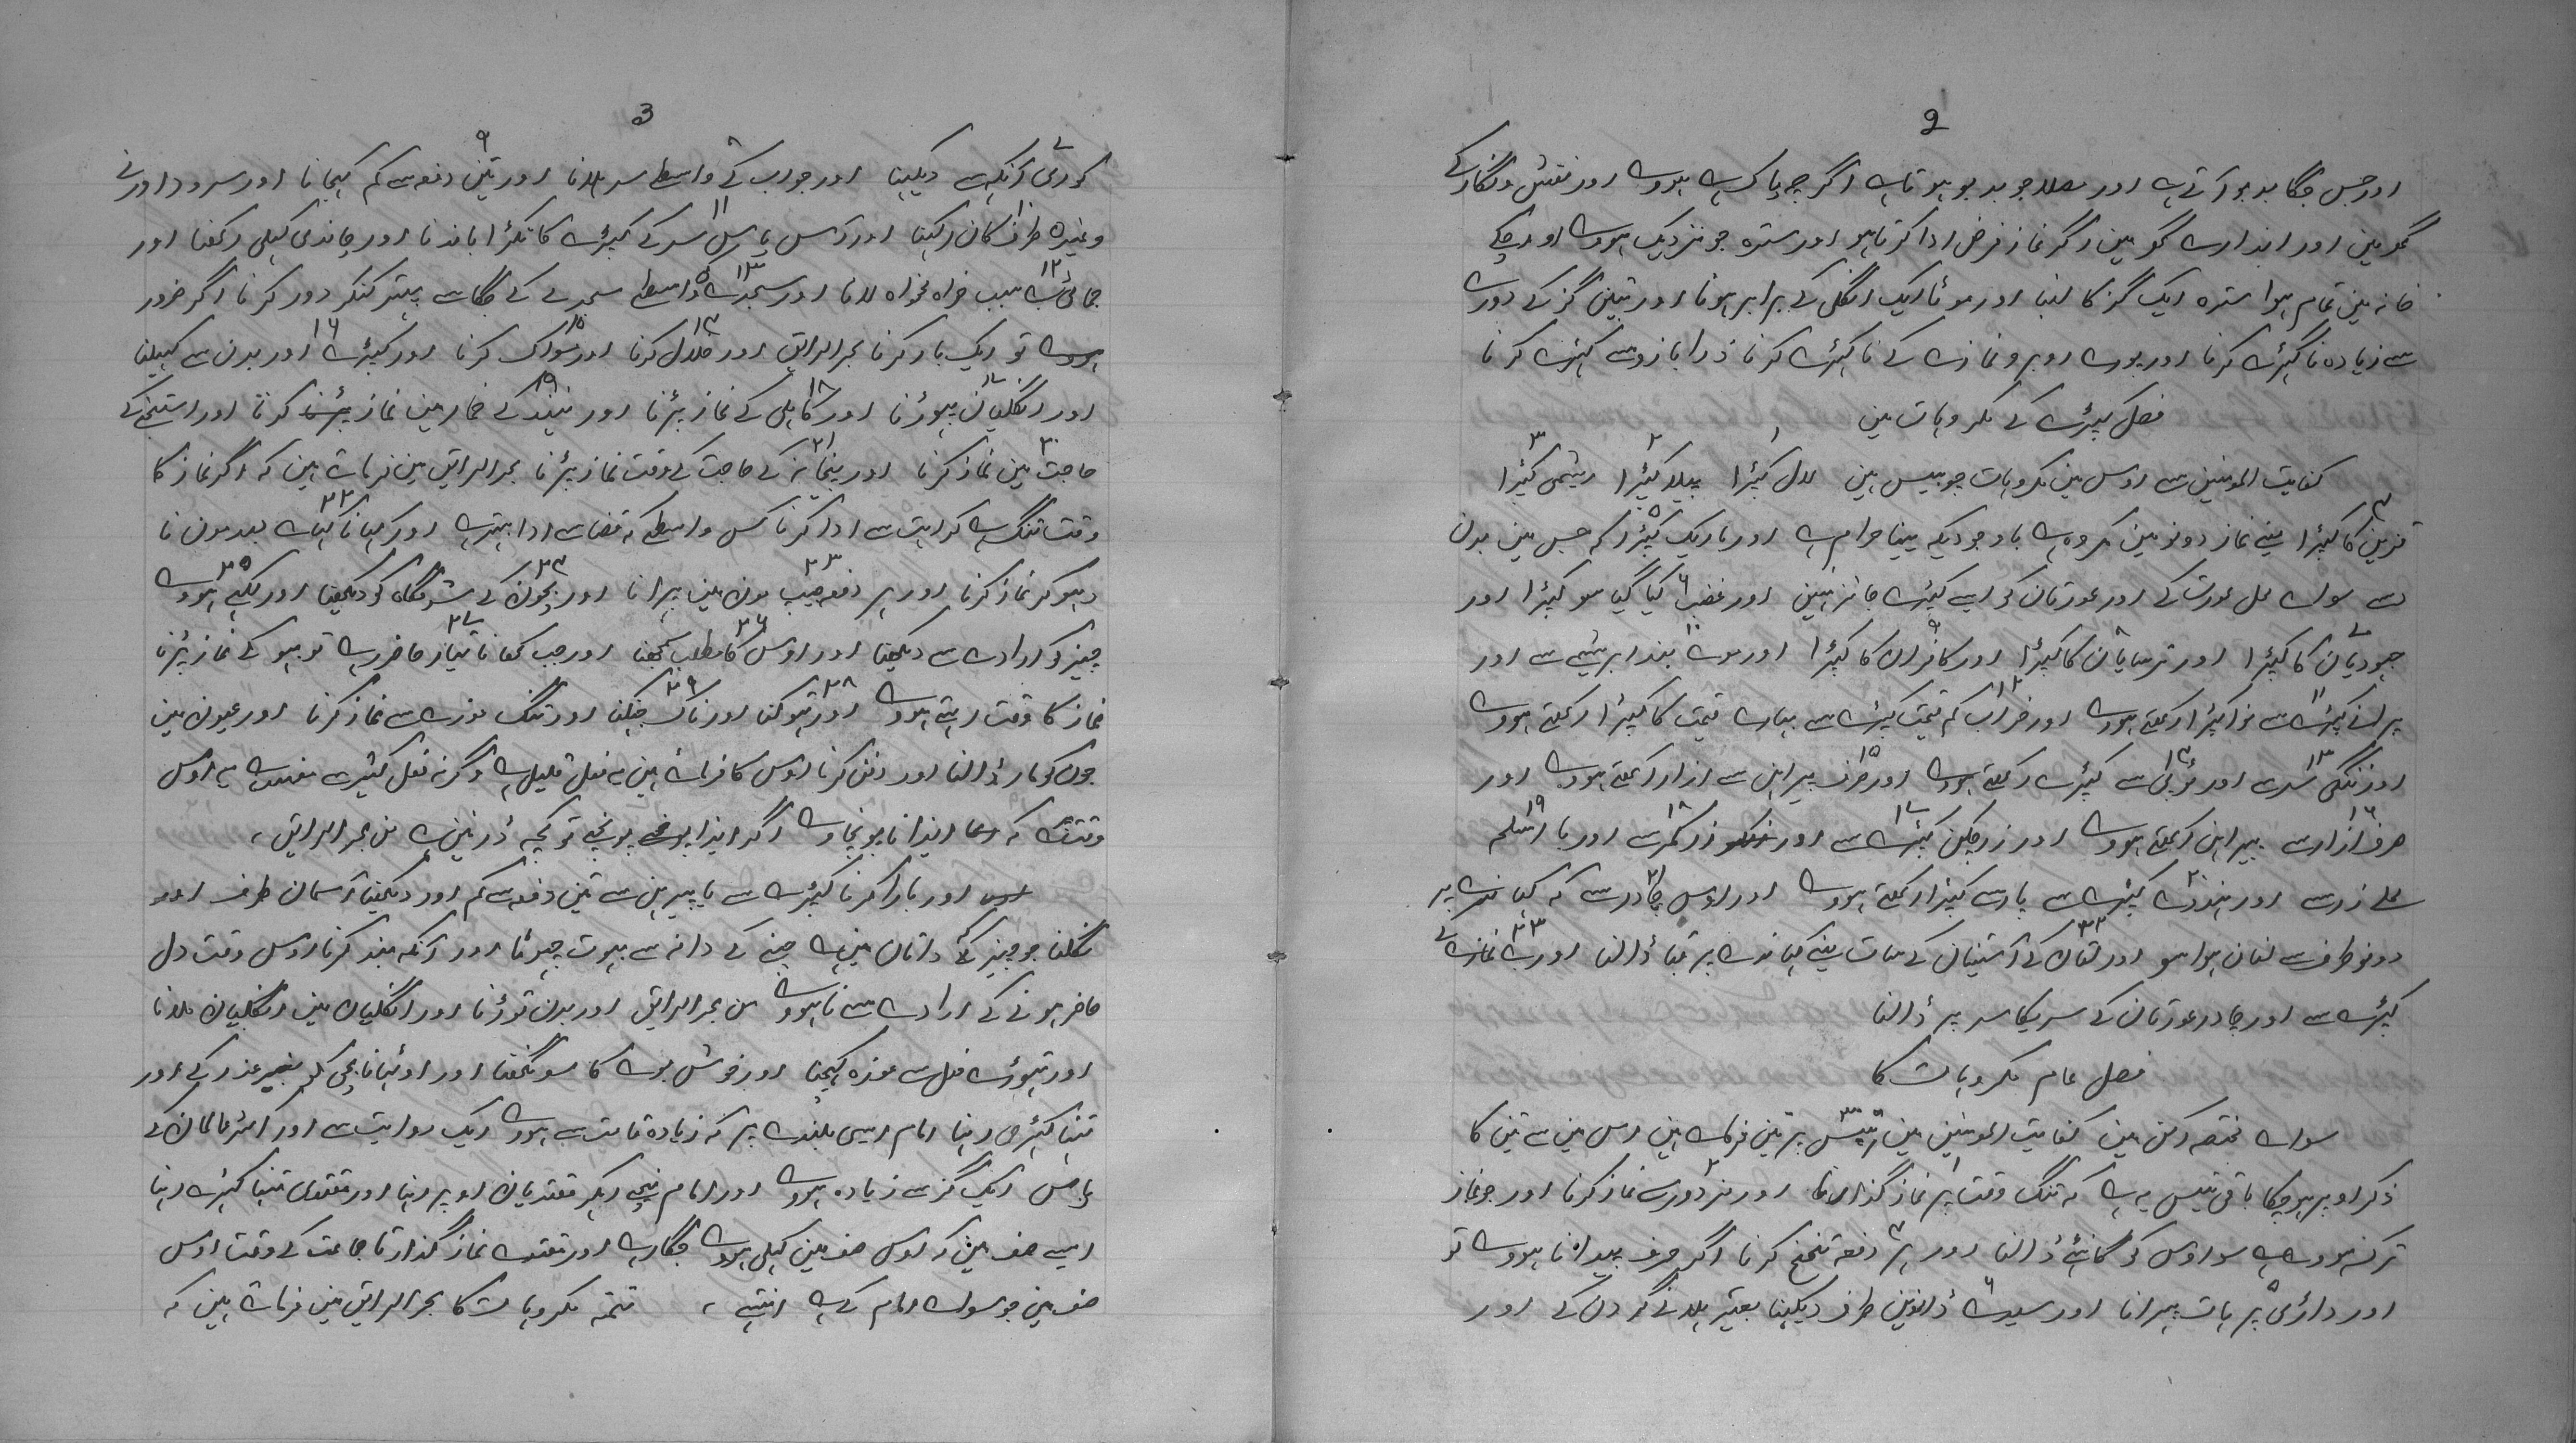 2
اور جس جگا بدبو آتے ہے اور جو بدبو ہوتا ہے اگر چہ پاک ہے ہووے اور نقش و نگار کے
گھر مین اور اگر نماز فرض ادا کرتا ہو اور سترہ جو نزدیک ہووے اور
خانہ مین تمام ہوا سترہ ایک گز کا لنبا اور موٹا ایک انگلی کے برابر ہونا اور تین گز کے دورے
سے زیادہ نا کھڑے کرنا اور روبرو نمازے کے نا کھڑے کرنا ذرا بازو سے کھڑے کرنا
فصل کپڑے کے مکروہات مین
کفایت المومنین سے اوس مین مکروہات چوبیس ہین ١ لال کپڑا ٢ پیلا کپڑا ٣ ریشمی کپڑا
٤ کا کپڑا یعنے نماز دونو مین مکروہ ہے باوجودیکہ پیننا حرام ہے اور ٥ باریک کپڑا کہ جس مین بدن
دسے سواے محل عورت کے اور عورتان کو ایسے کپڑے جائز نہین اور ٦ غضب کیا گیا سو کپڑا اور
٧ جہودیان کا کپڑا اور ٨ ترسایان کا کپڑا اور ٩ کافران کا کپڑا اور ١٠ بند ابریشمے سے اور
١١ پرانے کپڑے سے نوا کپڑا رکھتے ہووے اور ١٢ خراب کم قیمت کپڑے سے بہارے قیمت کا کپڑا رکھتے ہووے
اور ١٣ ننگی سرے اور ١٤ سے کپڑے رکھتے ہووے اور ١٥ صرف پیراہن سے ازار رکھتے ہووے اور
١٦ صرف ازار سے پیراہن رکھتے ہووے اور ١٧ کپڑے سے اور ١٨ زر کمر سے اور ١٩ با اسلحہ
محلے زرسے اور ٢٠ کپڑے سے پارسے کپڑا رکھتے ہووے اور ٢١ اوس چادر سے کہ کہاندے پر
دونو طرف سے لنبان ہوا سو اور ٢٢ قبان کے آستینان کے سات یعنے کہاندے پر قبا ڈالنا اور ٢٣ بے نمازے کے
کپڑے سے اور چادر عورتان کے سریکا سر پر ڈالنا
فصل عام مکروہات کا
سواے مختصہ رکن مین کفایت المومنین مین پر تین فرماے ہین اس مین سے تین کا
ذکر اوپر ہو چکا باقی تیس یہ ہے کہ ١ تنگ وقت پر نماز گذارنا اور ٢ مزدورے نماز کرنا اور جو نماز
ترک ہووے سو اوس کو گانٹے ڈالنا اور ٤ ہر دفعہ تنحنح کرنا اگر حرف پیدا نا ہووے تو
اور ٥ داڑی پر ہات پہرانا اور ٦ سیدے ڈانوین طرف دیکہنا بغیر ہلانے گردن کے اور
3
٧ کوری آنکہ سے دیکہنا اور ٨ جواب کے واسطے سر ہلانا اور ٩ تین دفعہ سے کم کہجانا اور سرود اور
وغیرہ طرف کان رکہنا اور ١١ سر کے کپڑے کا ٹکڑا باندنا اور چاندی کہلی رکھنا اور
١٢ جمائی بے سبب خواہ نخواہ لانا اور ١٣ سجدے واسطے سجدے کے جگا سے پہتر کنکر دور کرنا اگر ضرور
ہووے تو ایک بار کرنا بحر الرایق اور ١٤ خلال کرنا اور ١٥ مسواک کرنا اور ١٦ کپڑے اور بدن سے کہیلنا
اور ١٧ انگلیان پہوڑنا اور ١٨ کاہلی کے نماز پڑنا اور ١٩ نیند کے خمار مین نماز کرنا اور استنجے کے
٢٠ حاجت مین نماز کرنا اور ٢١ پیخانے کے حاجت کے وقت نماز پڑنا بحر الرایق مین فرماے ہین کہ اگر نماز کا
وقت تنگ ہے کراہت سے ادا کرنا کس واسطے کہ قضا سے ادا بہتر ہے اور ٢٢ کہانا کہاے بعد مون نا
دہو کر نماز کرنا اور ہر دفعہ ٢٣ جیب مون مین پہرانا اور ٢٤ بچون کے شرمگاہ کو دیکھنا اور ٢٥ لکہی ہووے
چیز کو ارادے سے دیکھنا اور ٢٦ اوس کا مطلب سمجھنا اور ٢٧ جب کھانا تیار حاضر ہے تو بہو کے نماز پڑنا
نماز کا وقت رہتے ہووے اور ٢٨ تہوکنا اور ٢٩ ناک چھنکنا اور تنگ موزے سے نماز کرنا اور عیون مین
جون کو مار ڈالنا اور دفن کرنا اوس کا فرماے ہین یہ فعل قلیل ہے وگرنہ فعل کثیر سے مفسد ہے یہ اوس
وقت کہ ایذا نا پہونچاوے اگر ایذا پہونچے تو کچہ ڈر نہین ہے من بحر الرایق ،
اور بارا کرنا کپڑے سے یا پیرہن سے تین دفعہ سے کم اور دیکھنا آسمان طرف اور
نگلنا جو چیز کہ داتان مین ہے چنے کے دانہ سے بہوت چھوٹا اور آنکہ بند کرنا اوس وقت دل
حاضر ہونے کے ارادے سے نا ہووے من بحر الرایق اور بدن توڑنا اور انگلیان مین انگلیان ملانا
اور تہوڑے فعل سے موزہ کہیچنا اور خوش بوے کا سونگھنا اور اوٹہانا بچی کو بغیر عذر کے اور
تنہا کہڑے رہنا امام ایسی بلندے پر کہ زیادہ قامت سے ہووے ایک روایت سے اور اکثر عالمان کے
پاس ایک گز سے زیادہ ہووے اور امام نیچے رہکر مقتدیان اوپر رہنا اور مقتدی تنہا کہڑے رہنا
ایسے صف مین کہ اوس صف مین کہلی ہووے جگا رہے اور مقتدے نماز گذارنا جماعت کے وقت اوس
صف مین جو سواے امام کے ہے انتہے ، تتمہ مکروہات کا بحر الرایق مین فرماے ہین کہ